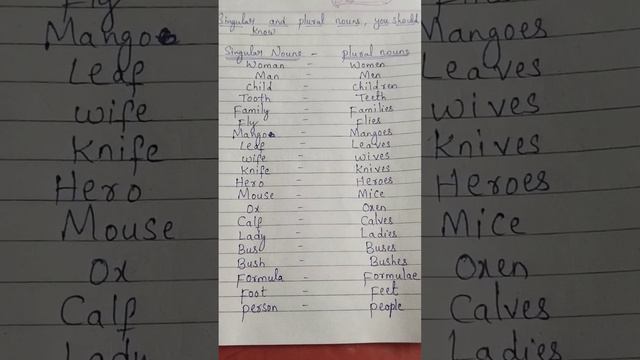 Singular and plural nouns, you should
know
Singular Nouns - plural nouns
Woman - Women
Man - Men
child - children
Tooth - Teeth
Family - Families
Fly - Flies
Mango - Mangoes
Leaf - Leaves
wife - wives
Knife - Knives
Hero - Heroes
Mouse - Mice
Ox - Oxen
Calf - Calves
Lady - Ladies
Bus - Buses
Bush - Bushes
Formula - Formulae
Foot - Feet
person - people
Fly
Mango
Leaf
wife
Knife
Hero
Mouse
Ox
Calf
Lady
Mangoes
Leaves
wives
Knives
Heroes
Mice
Oxen
Calves
Ladies